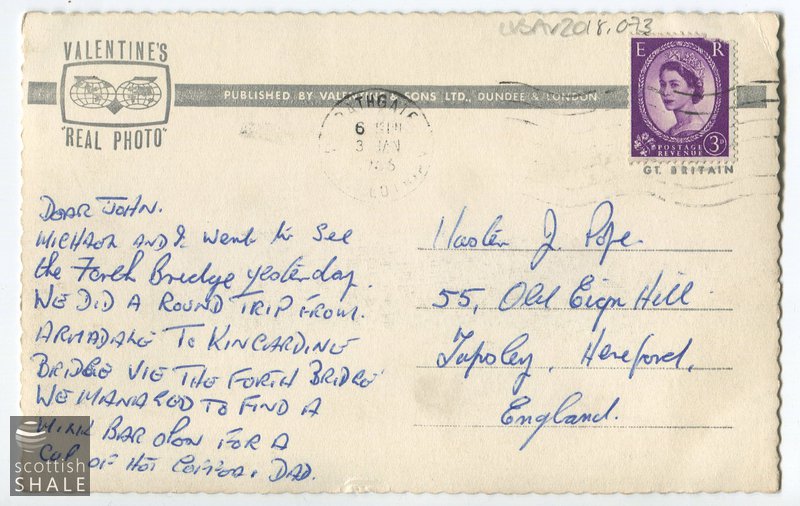 LVSAV2018.073
VALENTINE'S
"REAL PHOTO"
PUBLISHED BY VALENTINE & SONS LTD., DUNDEE & LONDON
6 PM
3 JAN
E R
POSTAGE REVENUE 3D
GT. BRITAIN
DEAR JOHN.
MICHAEL AND I went to See
the Forth Bridge yesterday.
WE DID A ROUND TRIP FROM
ARMADALE TO KINCARDINE
BRIDGE VIE THE FORTH BRIDGE
WE MANAGED TO FIND A
MILK BAR OPEN FOR A
CUP OF HOT COFFEE. DAD.
Master J. Pope.
55, Old Eign Hill
Tupsley, Hereford,
England.
scottish
SHALE